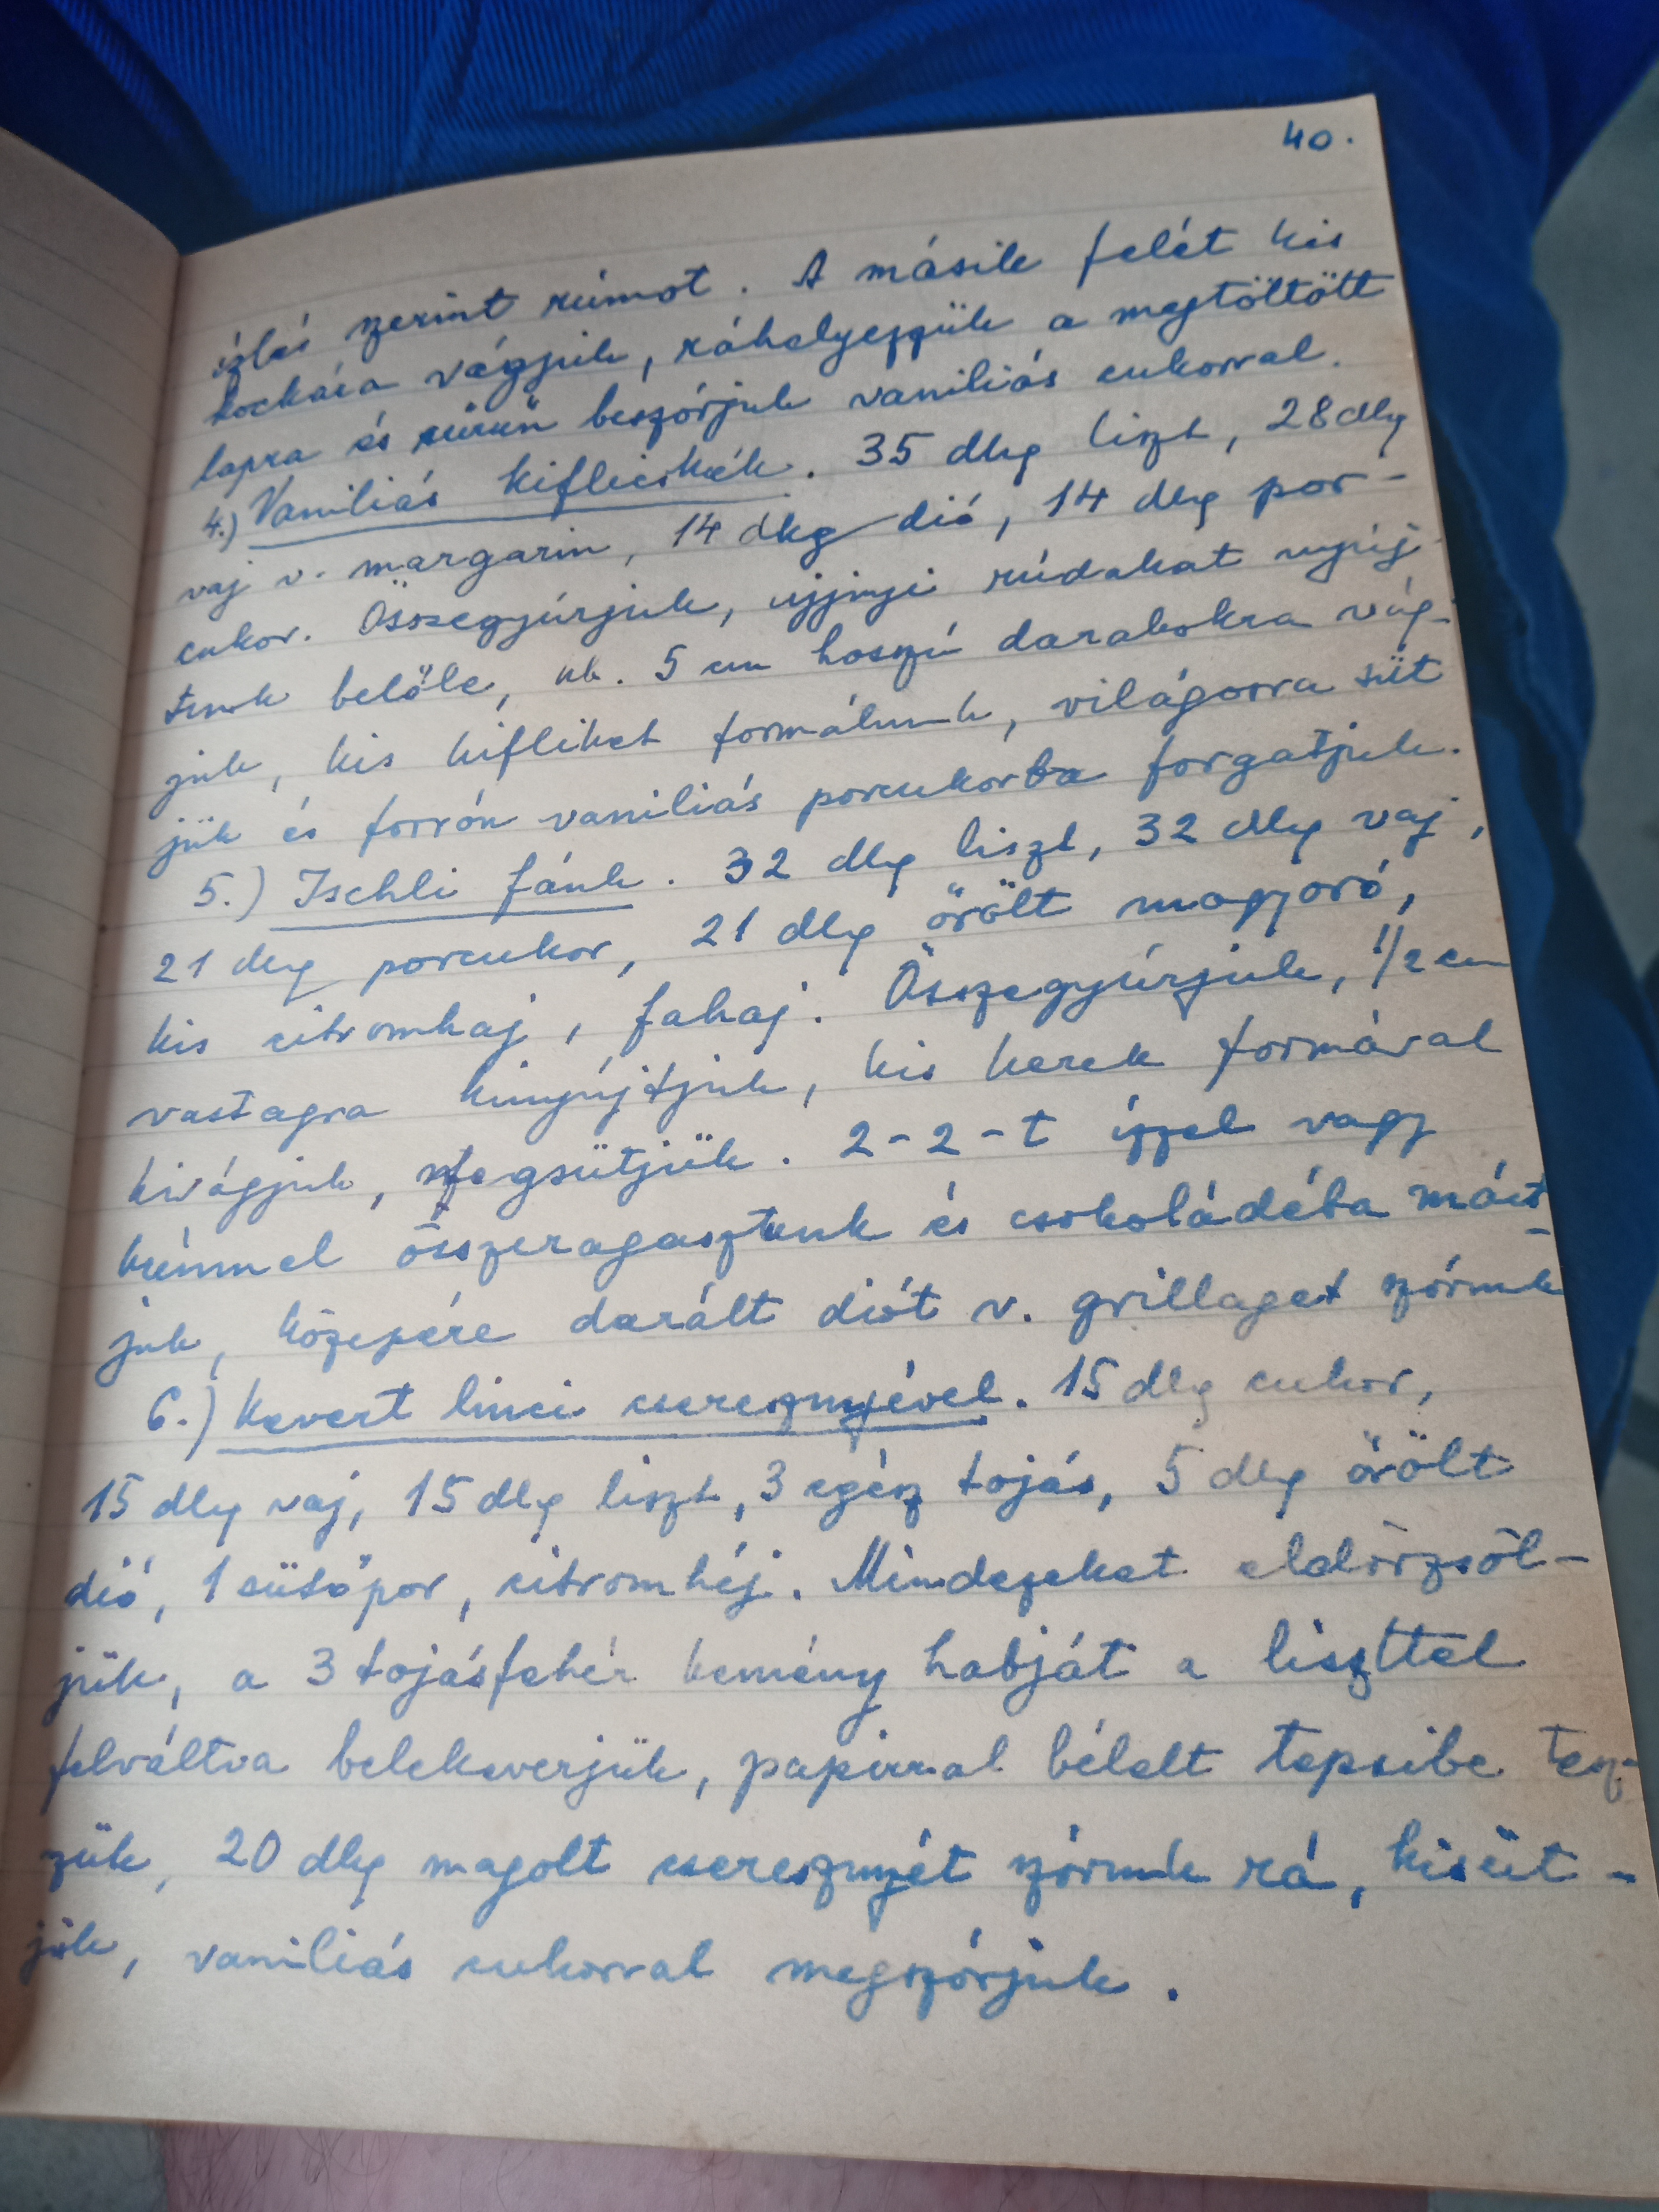 40.
izlés szerint rúmot. A másik felét kis
kockára vágjuk, ráhelyezzük a megtöltött
lapra és sűrűn beszórjuk vaniliás cukorral.
4.) Vaniliás kiflicskék. 35 dkg liszt, 28 dkg
vaj v. margarin, 14 dkg dió, 14 dkg por-
cukor. Összegyúrjuk, ujjnyi rúdakat nyúj-
tunk belőle, kb. 5 cm hosszú darabokra vág-
juk, kis kifliket formálunk, világosra süt
jük és forrón vaniliás porcukorba forgatjuk.
5.) Ischli fánk. 32 dkg liszt, 32 dkg vaj,
21 dkg porcukor, 21 dkg őrölt mogyoró,
kis citromhaj, fahaj. Összegyúrjuk, 1/2 cm
vastagra kinyújtjuk, kis kerek formával
kivágjuk, megsütjük. 2-2-t ízzel vagy
krémmel összeragasztunk és csokoládéba márt-
juk, közepére darált diót v. grillaget szórunk
6.) Kevert linci cseresznyével. 15 dkg cukor,
15 dkg vaj, 15 dkg liszt, 3 egész tojás, 5 dkg őrölt
dió, 1 sütőpor, citromhéj. Mindezeket eldörzsöl-
jük, a 3 tojásfehér kemény habját a liszttel
felváltva belekeverjük, papirral bélelt tepsibe tesz-
szük, 20 dkg magolt cseresznyét szórunk rá, kisüt-
jük, vaniliás cukorral megszórjuk.